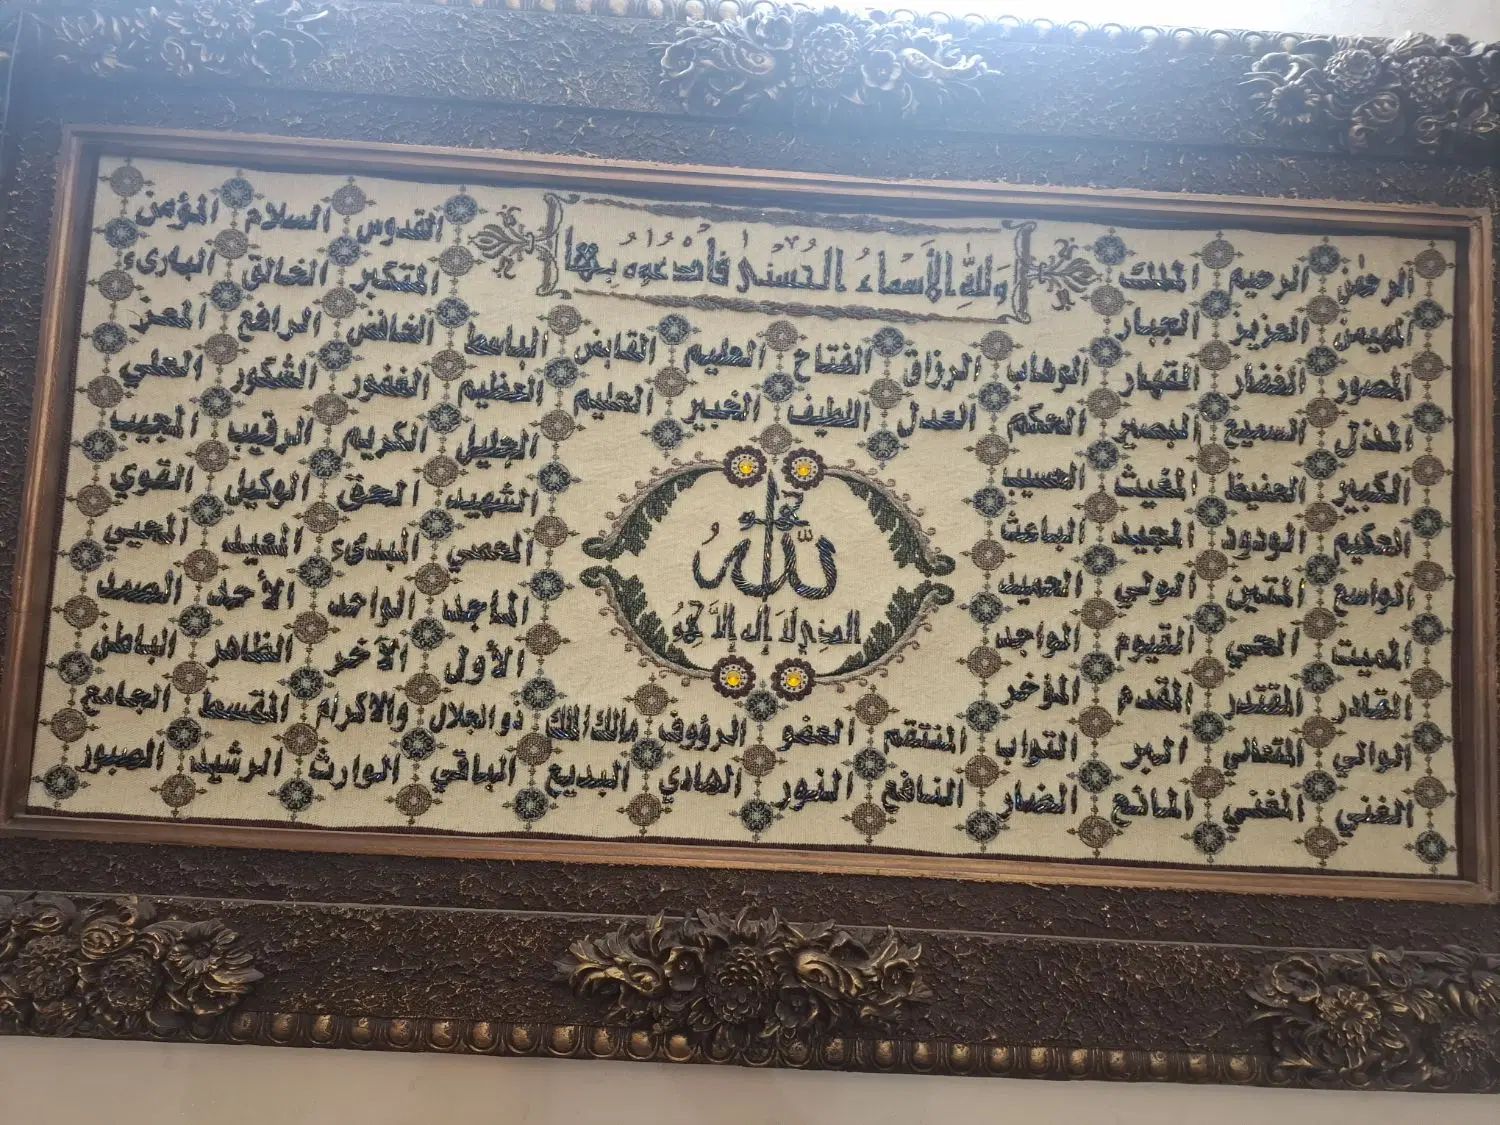 وَلِلَّهِ الأَسْمَاءُ الحُسْنىٰ فَادْعُوهُ بِهَا
الرحمٰن الرحيم الملك القدوس السلام المؤمن
المهيمن العزيز الجبار المتكبر الخالق البارىء
المصور الغفار القهار الوهاب الرزاق الفتاح العليم القابض الباسط الخافض الرافع المعز
المذل السميع البصير الحكم العدل اللطيف الخبير الحليم العظيم الغفور الشكور العلي
الكبير الحفيظ المغيث الحسيب الجليل الكريم الرقيب المجيب
الحكيم الودود المجيد الباعث الشهيد الحق الوكيل القوي
الواسع المتين الولي الحميد المحصي المبدىء المعيد المحيي
المميت الحي القيوم الواجد الماجد الواحد الأحد الصمد
القادر المقتدر المقدم المؤخر الأول الآخر الظاهر الباطن
الوالي المتعالي البر التواب المنتقم العفو الرؤوف مالك الملك ذو الجلال والاكرام المقسط الجامع
الغني المغني المانع الضار النافع النور الهادي البديع الباقي الوارث الرشيد الصبور
هو
اللّٰهُ
الذي لا إله إلا هو